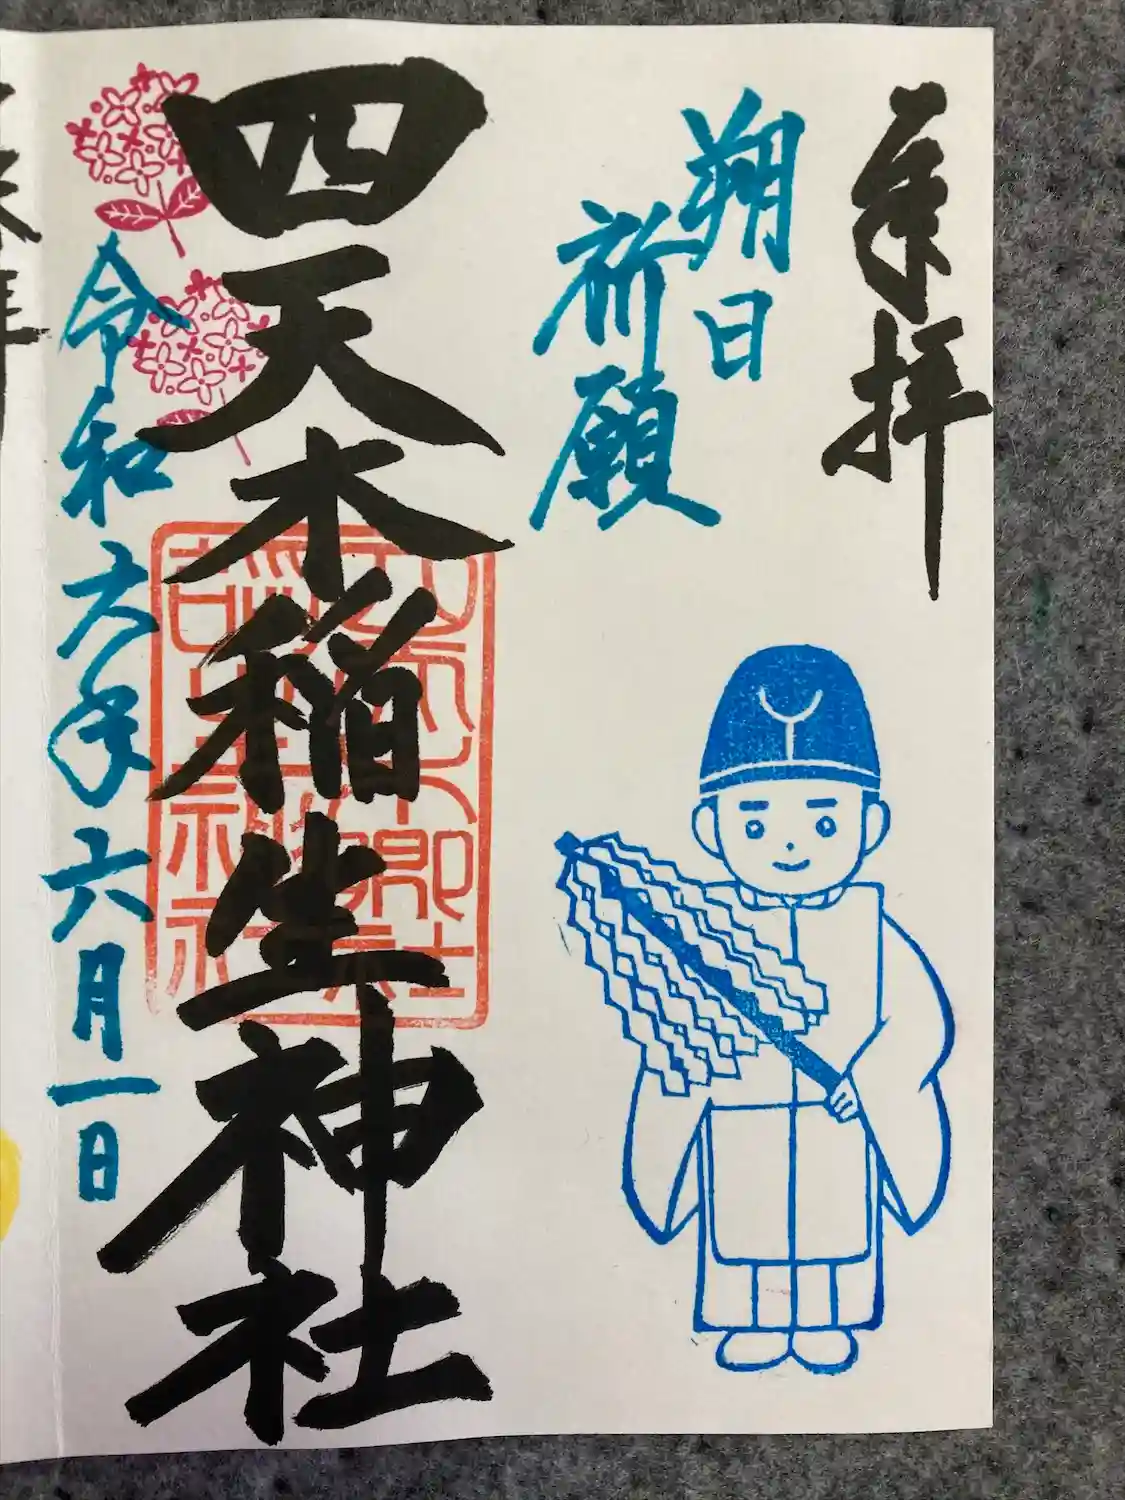 奉拝
朔日
祈願
四天木稲生神社
令和六年六月一日